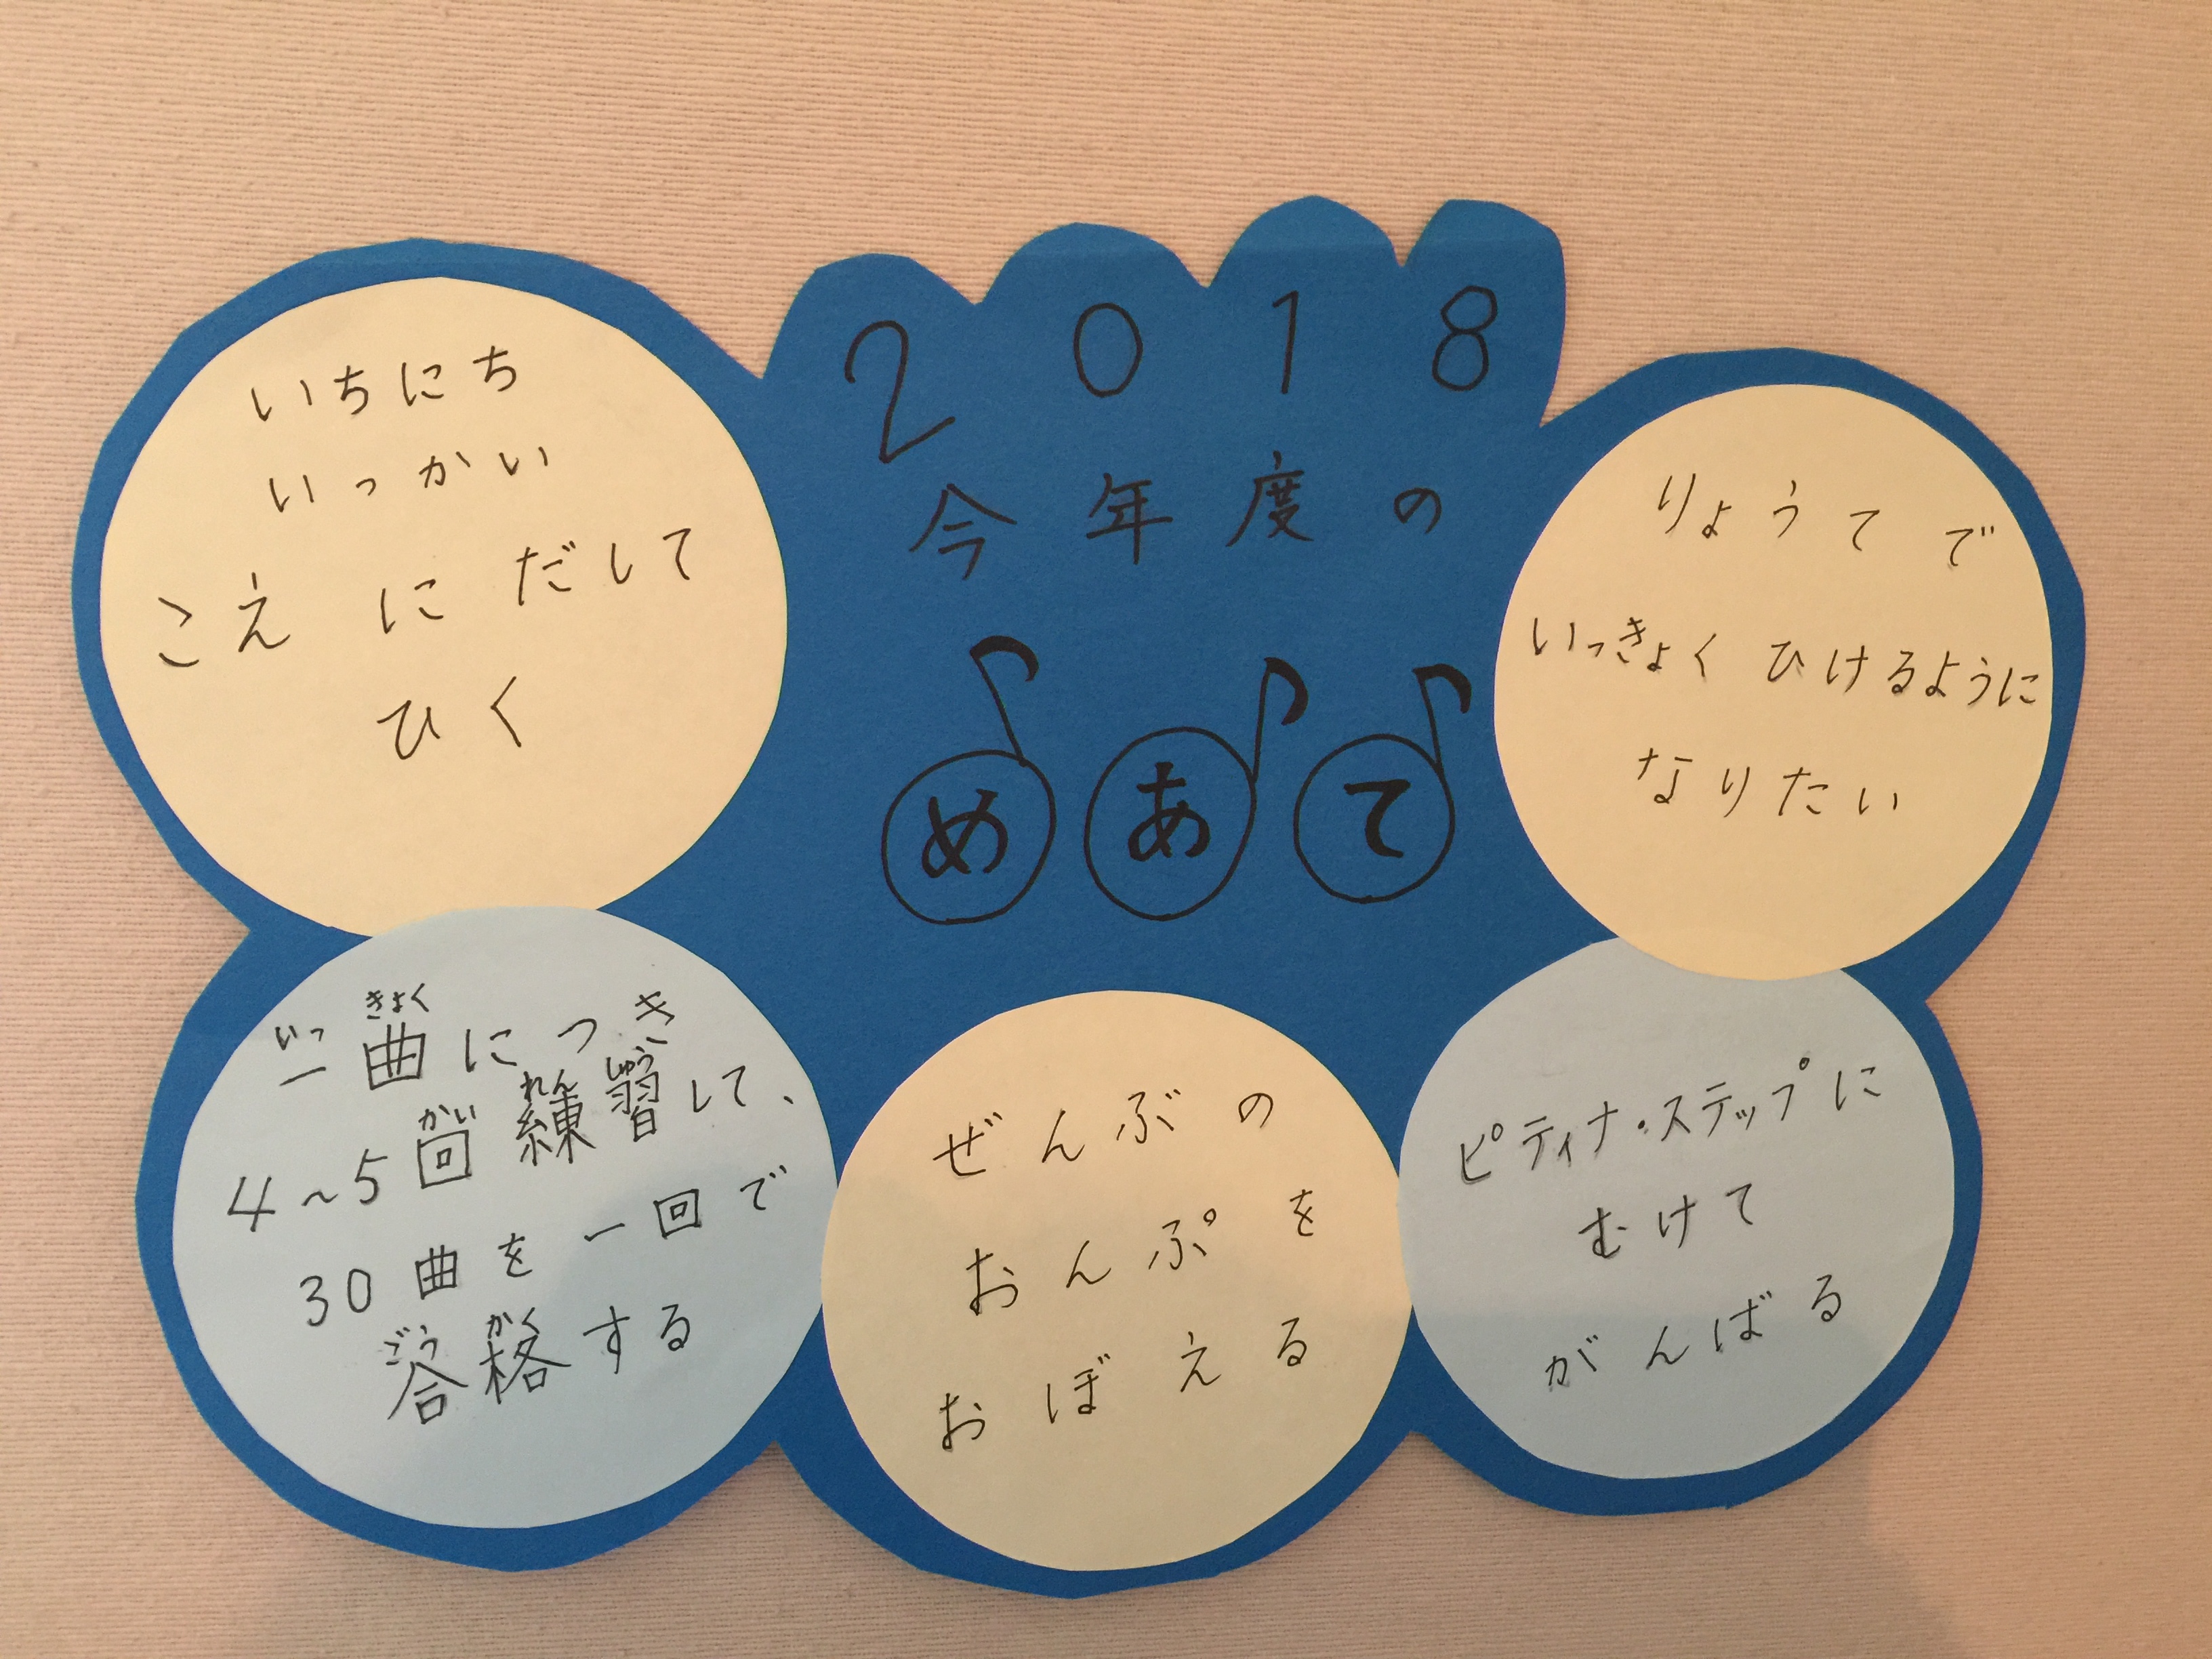 2018
今年度の
めあて
いちにち
いっかい
こえ に だして
ひく
りょうてで
いっきょく ひけるように
なりたい
一曲につき
4～5回練習して、
30曲を一回で
合格する
ぜんぶの
おんぷを
おぼえる
ピティナ・ステップに
むけて
がんばる